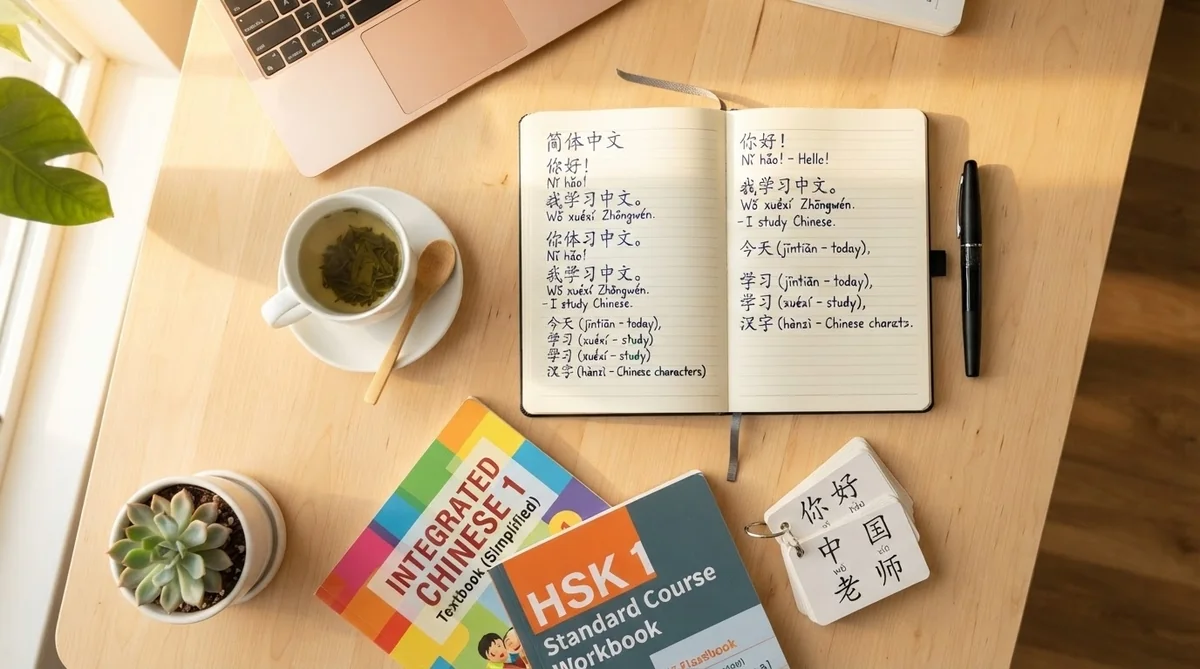 简体中文
你好!
Nǐ hǎo!
我学习中文。
Wǒ xuéxí Zhōngwén.
你体习中文。
Nǐ hǎo!
我学习中文。
Wǒ xuéxí Zhōngwén.
- I study Chinese.
今天 (jīntiān - today),
学习 (xuéxí - study)
学习 (xuéxí - study)
汉字 (hànzì - Chinese characters)
你好!
Nǐ hǎo! - Hello!
我学习中文。
Wǒ xuéxí Zhōngwén.
- I study Chinese.
今天 (jīntiān - today),
学习 (jīntiān - today),
学习 (xuéxí - study),
汉字 (hànzì - Chinese
INTEGRATED
CHINESE 1
Textbook (Simplified)
HSK 1
Standard Course
Workbook
你好
中国
wǒ
老师